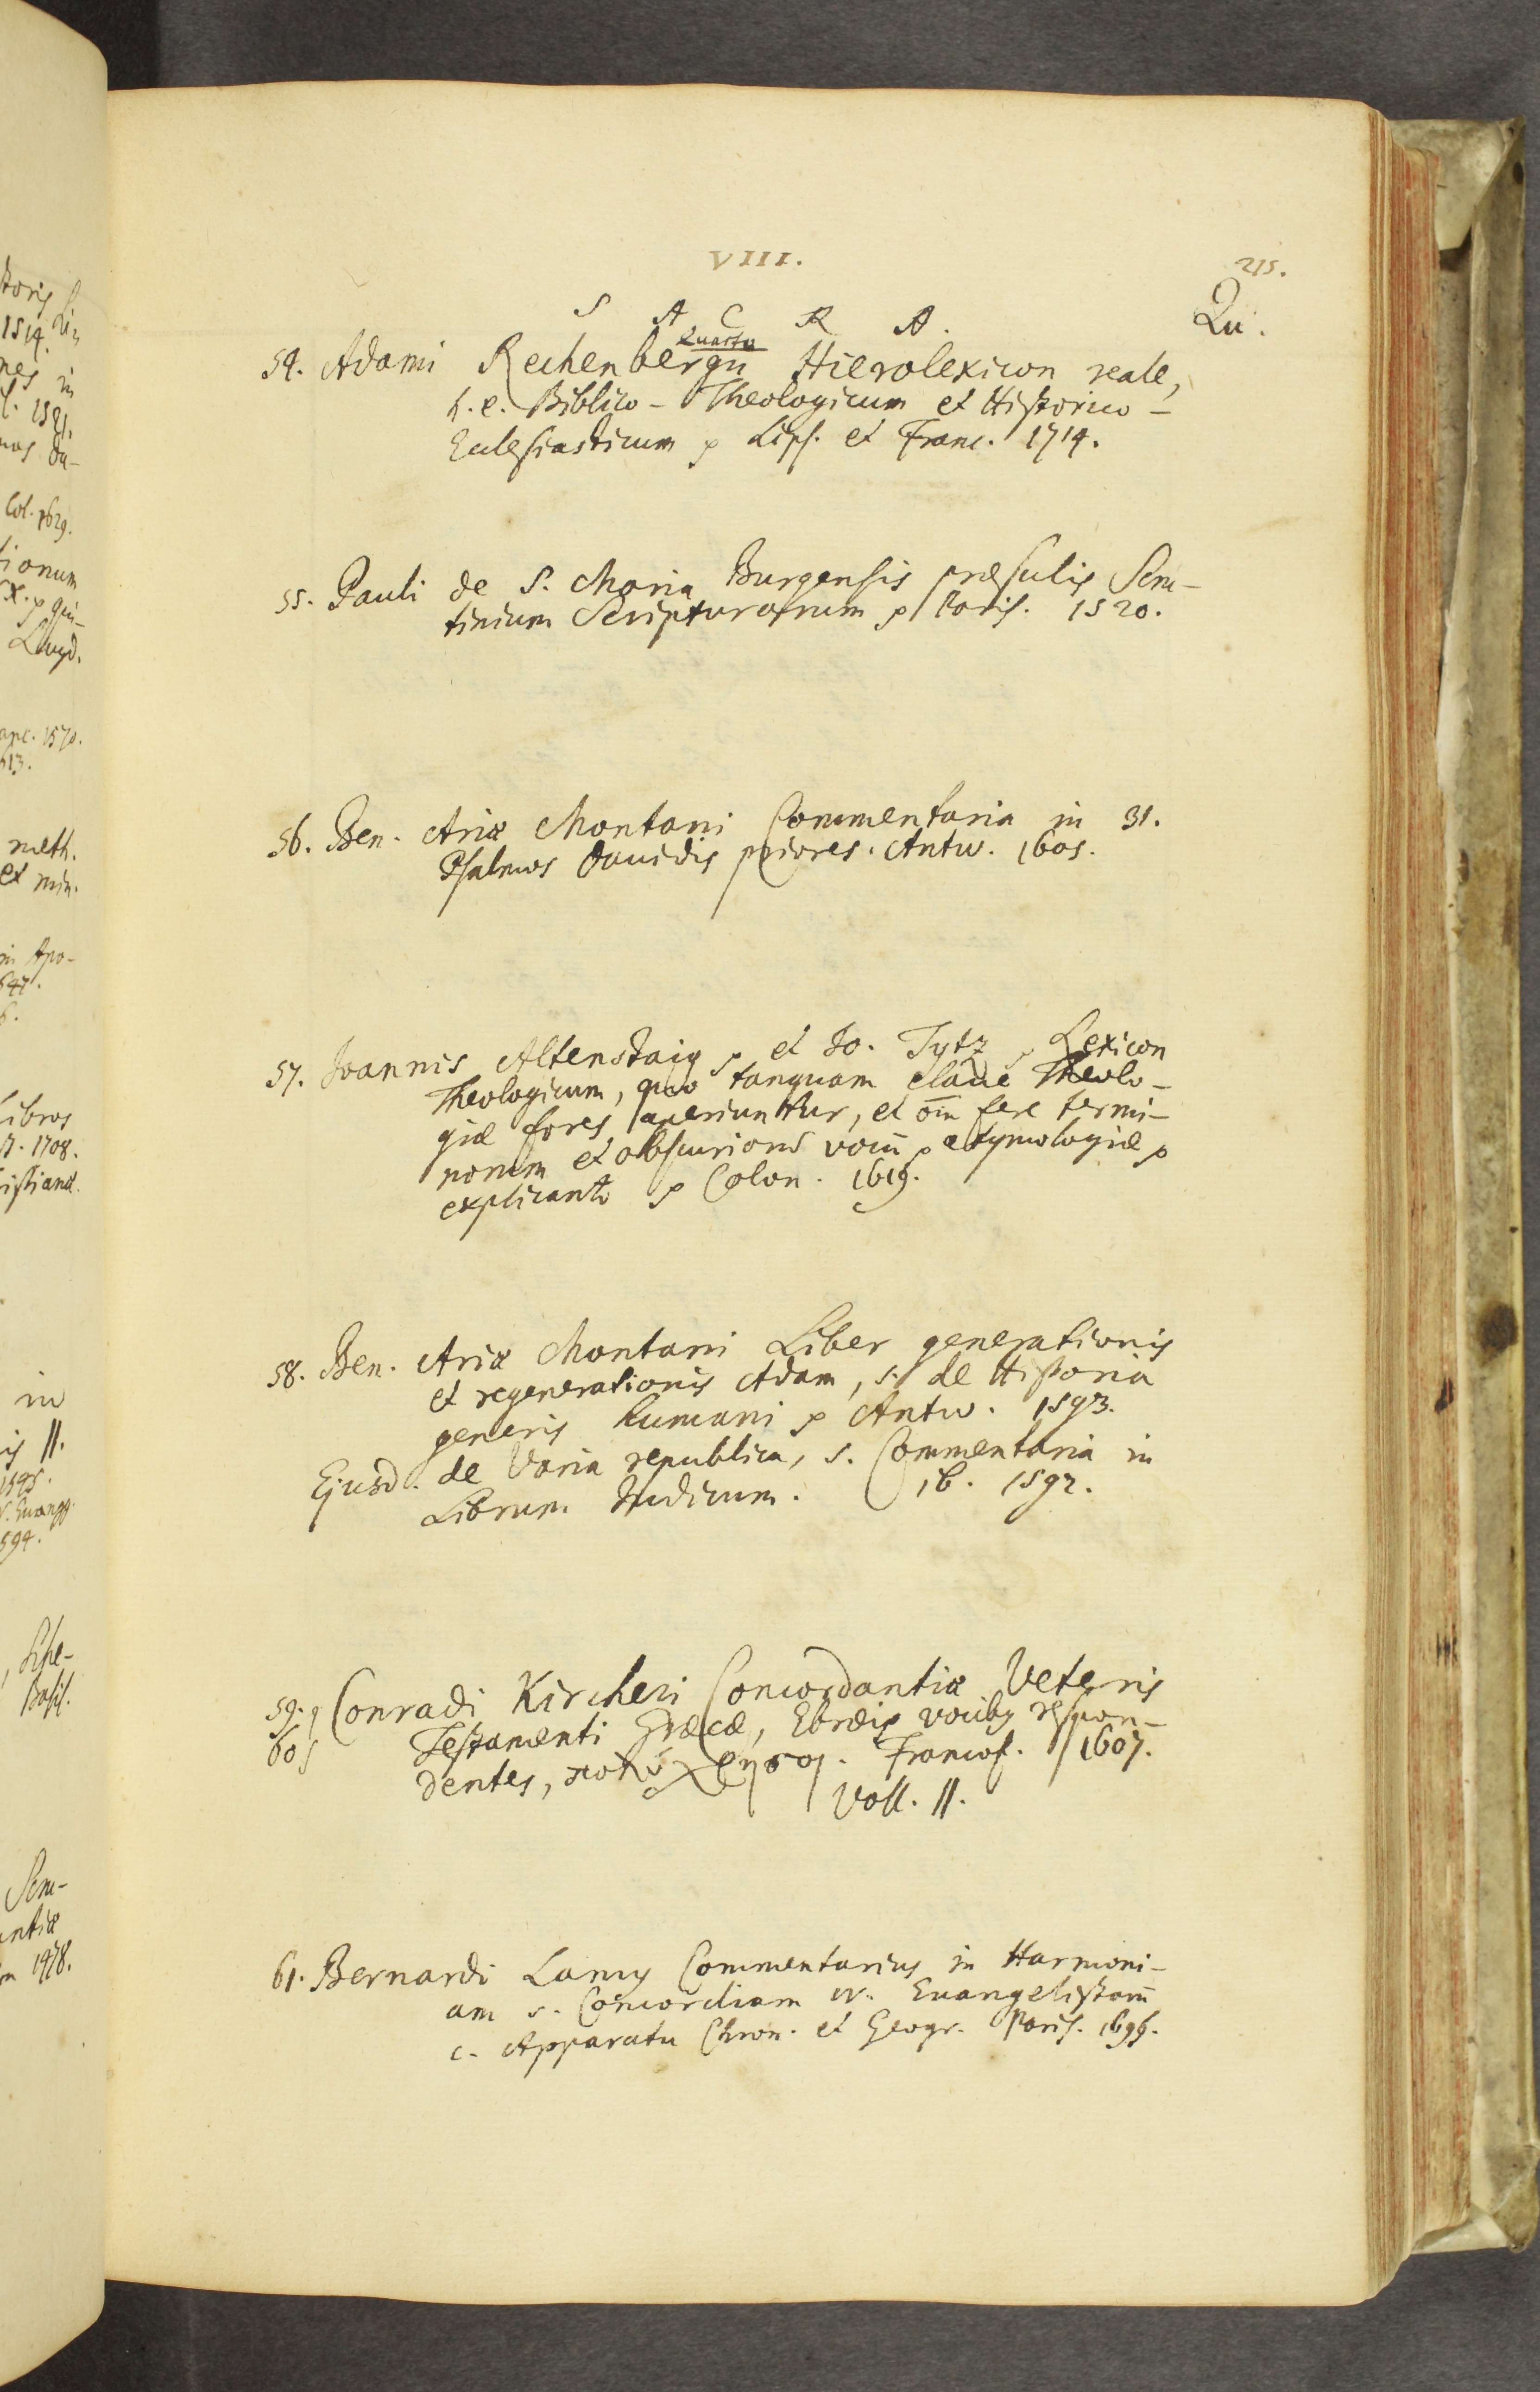 VIII.
215.
S A C R A.
Qu.
Quarto
54. Adami Rechenbergii Hierolexicon reale,
h. e. Biblico-Theologicum et Historico-
Ecclesiasticum p Lips. et Franc. 1714.
55. Pauli de S. Maria Burgensis præsulis Scru-
tinium Scripturarum p Paris. 1520.
56. Ben. Ariæ Montani Commentaria in 31.
Psalmos Dauidis priores. Antw. 1605.
57. Ioannis Altenstaig p et Io. Tytz p Lexicon
Theologicum, quo tanquam claue Theolo-
giæ fores aperiuntur, et om̄ fere termi-
norum et obscuriorū vocū p etymologiæ p
explicantr p Colon. 1619.
58. Ben. Ariæ Montani Liber generationis
et regenerationis Adam, s. de Historia
generis humani p Antw. 1593.
Ejusd. de Varia republica, s. Commentaria in
Librum Iudicum. ib. 1592.
59. Conradi Kircheri Concordantiæ Veteris
60 Testamenti Græcæ, Ebræis vocibq respon-
dentes, Francof. 1607.
Voll. II.
61. Bernardi Lamy Commentarius in Harmoni-
am s. Concordiam IV. Euangelistarū
c. Apparatu Chron. et Geogr. Paris. 1699.
toris
1514.
nes in
1521.
Col. 1629.
tionum
Lugd.
1570.
613.
meth.
et min.
in Apo-
647.
6.
Libros
1708.
istianæ.
in
is II.
1595.
Euangg.
594.
Basil.
Scru-
antiæ
1478.